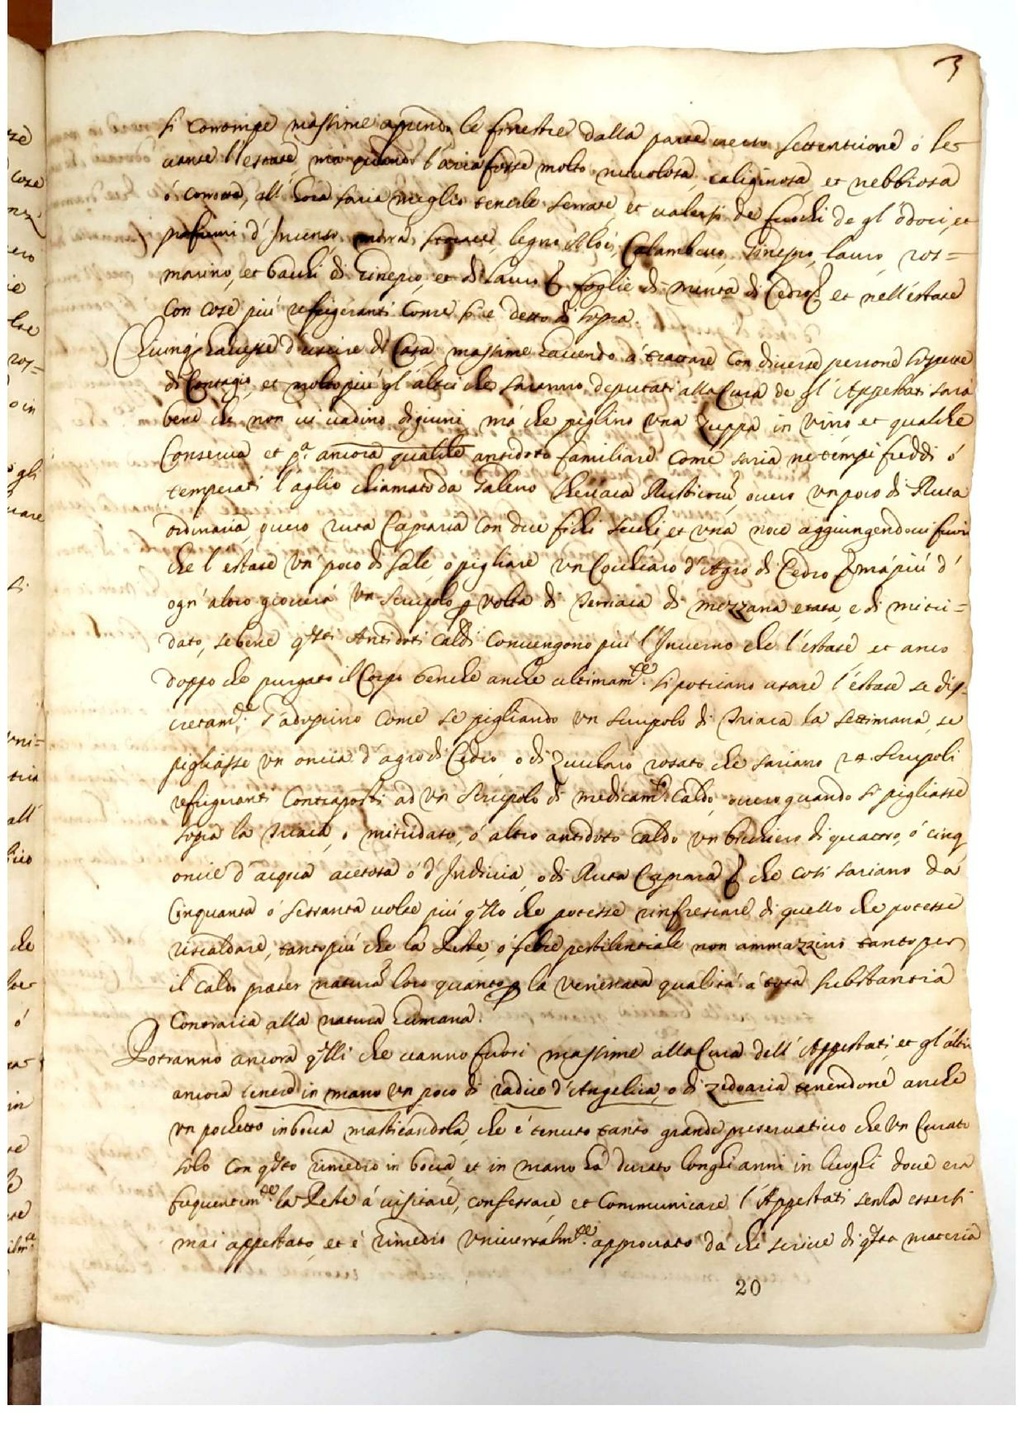 3
si corrompe massime aprendo le finestre dalla parte verso settentrione ò le-
vante l'estate, ma quando l'aria fosse molto nuvolosa, caliginosa, et nebbiosa
ò corrotta, all'hora saria meglio tenerle serrate, et valersi de fuochi de gl'odori, et
profumi d'Incenso, mirra, legno Aloè, Ginepro, lauro, ros=
marino, et bacche di Ginepro, et di lauro foglie di menta di Cedro et nell'estate
con cose più refrigeranti come si è detto di sopra.
Chiunq havesse d'uscire di Casa massime havendo à trattare con diverse persone sospette
di Contagio, et molto più gl'altri che saranno deputati alla Cura de gl'Appestati sarà
bene che non vi vadino digiuni, mà che piglino una Zuppa in vino et qualche
Conserva et pª ancora qualche antidoto familiare come saria ne tempi freddi ò
temperati l'aglio chiamato da Galeno Theriaca Rusticorũ, overo un poco di Ruta
ordinaria, overo ruta Capraria con due fichi secchi, et una noce aggiungendovi fuori
che l'estate un poco di sale, ò pigliare un Cocchiaro d'Agro di Cedro mà più d'
ogn'altro gioverà un scrupolo p volta di Teriaca di mezzana etata, e di mitri=
dato, se bene qsti Antidoti caldi convengono più l'Inverno che l'estate et anco
doppo che purgato il Corpo benche anche ultimamte si potriano usare l'estate se dis-
cretamte s'adoprino come se pigliando un scrupolo di Triaca la settimana, se
pigliasse un oncia d'agro di Cedro o di Zuccharo rosato che sariano 24 scrupoli
refrigeranti contraposti ad un scrupolo di medicamto Caldo, overo quando si pigliasse
sopra la Triaca, ò mitridato, ò altro antidoto caldo un bicchiero di quattro, ò cinq
oncie d'acqua acetosa ò d'Indivia, o di Ruta Capraria che così sariano da
Cinquanta ò settanta volte più qllo che potesse rinfrescare di quello che potesse
riscaldare, tanto più che la Peste, ò febre pestilentiale non ammazzino tanto per
il caldo præter naturã loro quanto p la venenata qualità à tota substantia
Contraria alla natura humana.
Potranno ancora qlli che vanno fuori massime alla Cura dell'Appestati, et gl'altri
ancora tenere in mano un poco di radice d'Angelica, o di zedoaria tenendone anche
un pochetto in bocca masticandola, che è tenuto tanto grande preservativo che un Curato
solo con qsto rimedio in bocca et in mano hà durato longhi anni in luoghi dove era
frequentemte la Peste à visitare, confessare et Communicare l'Appestati senza esserli
mai appestato, et è rimedio universalmte approvato da chi scrive di qsta materia
20